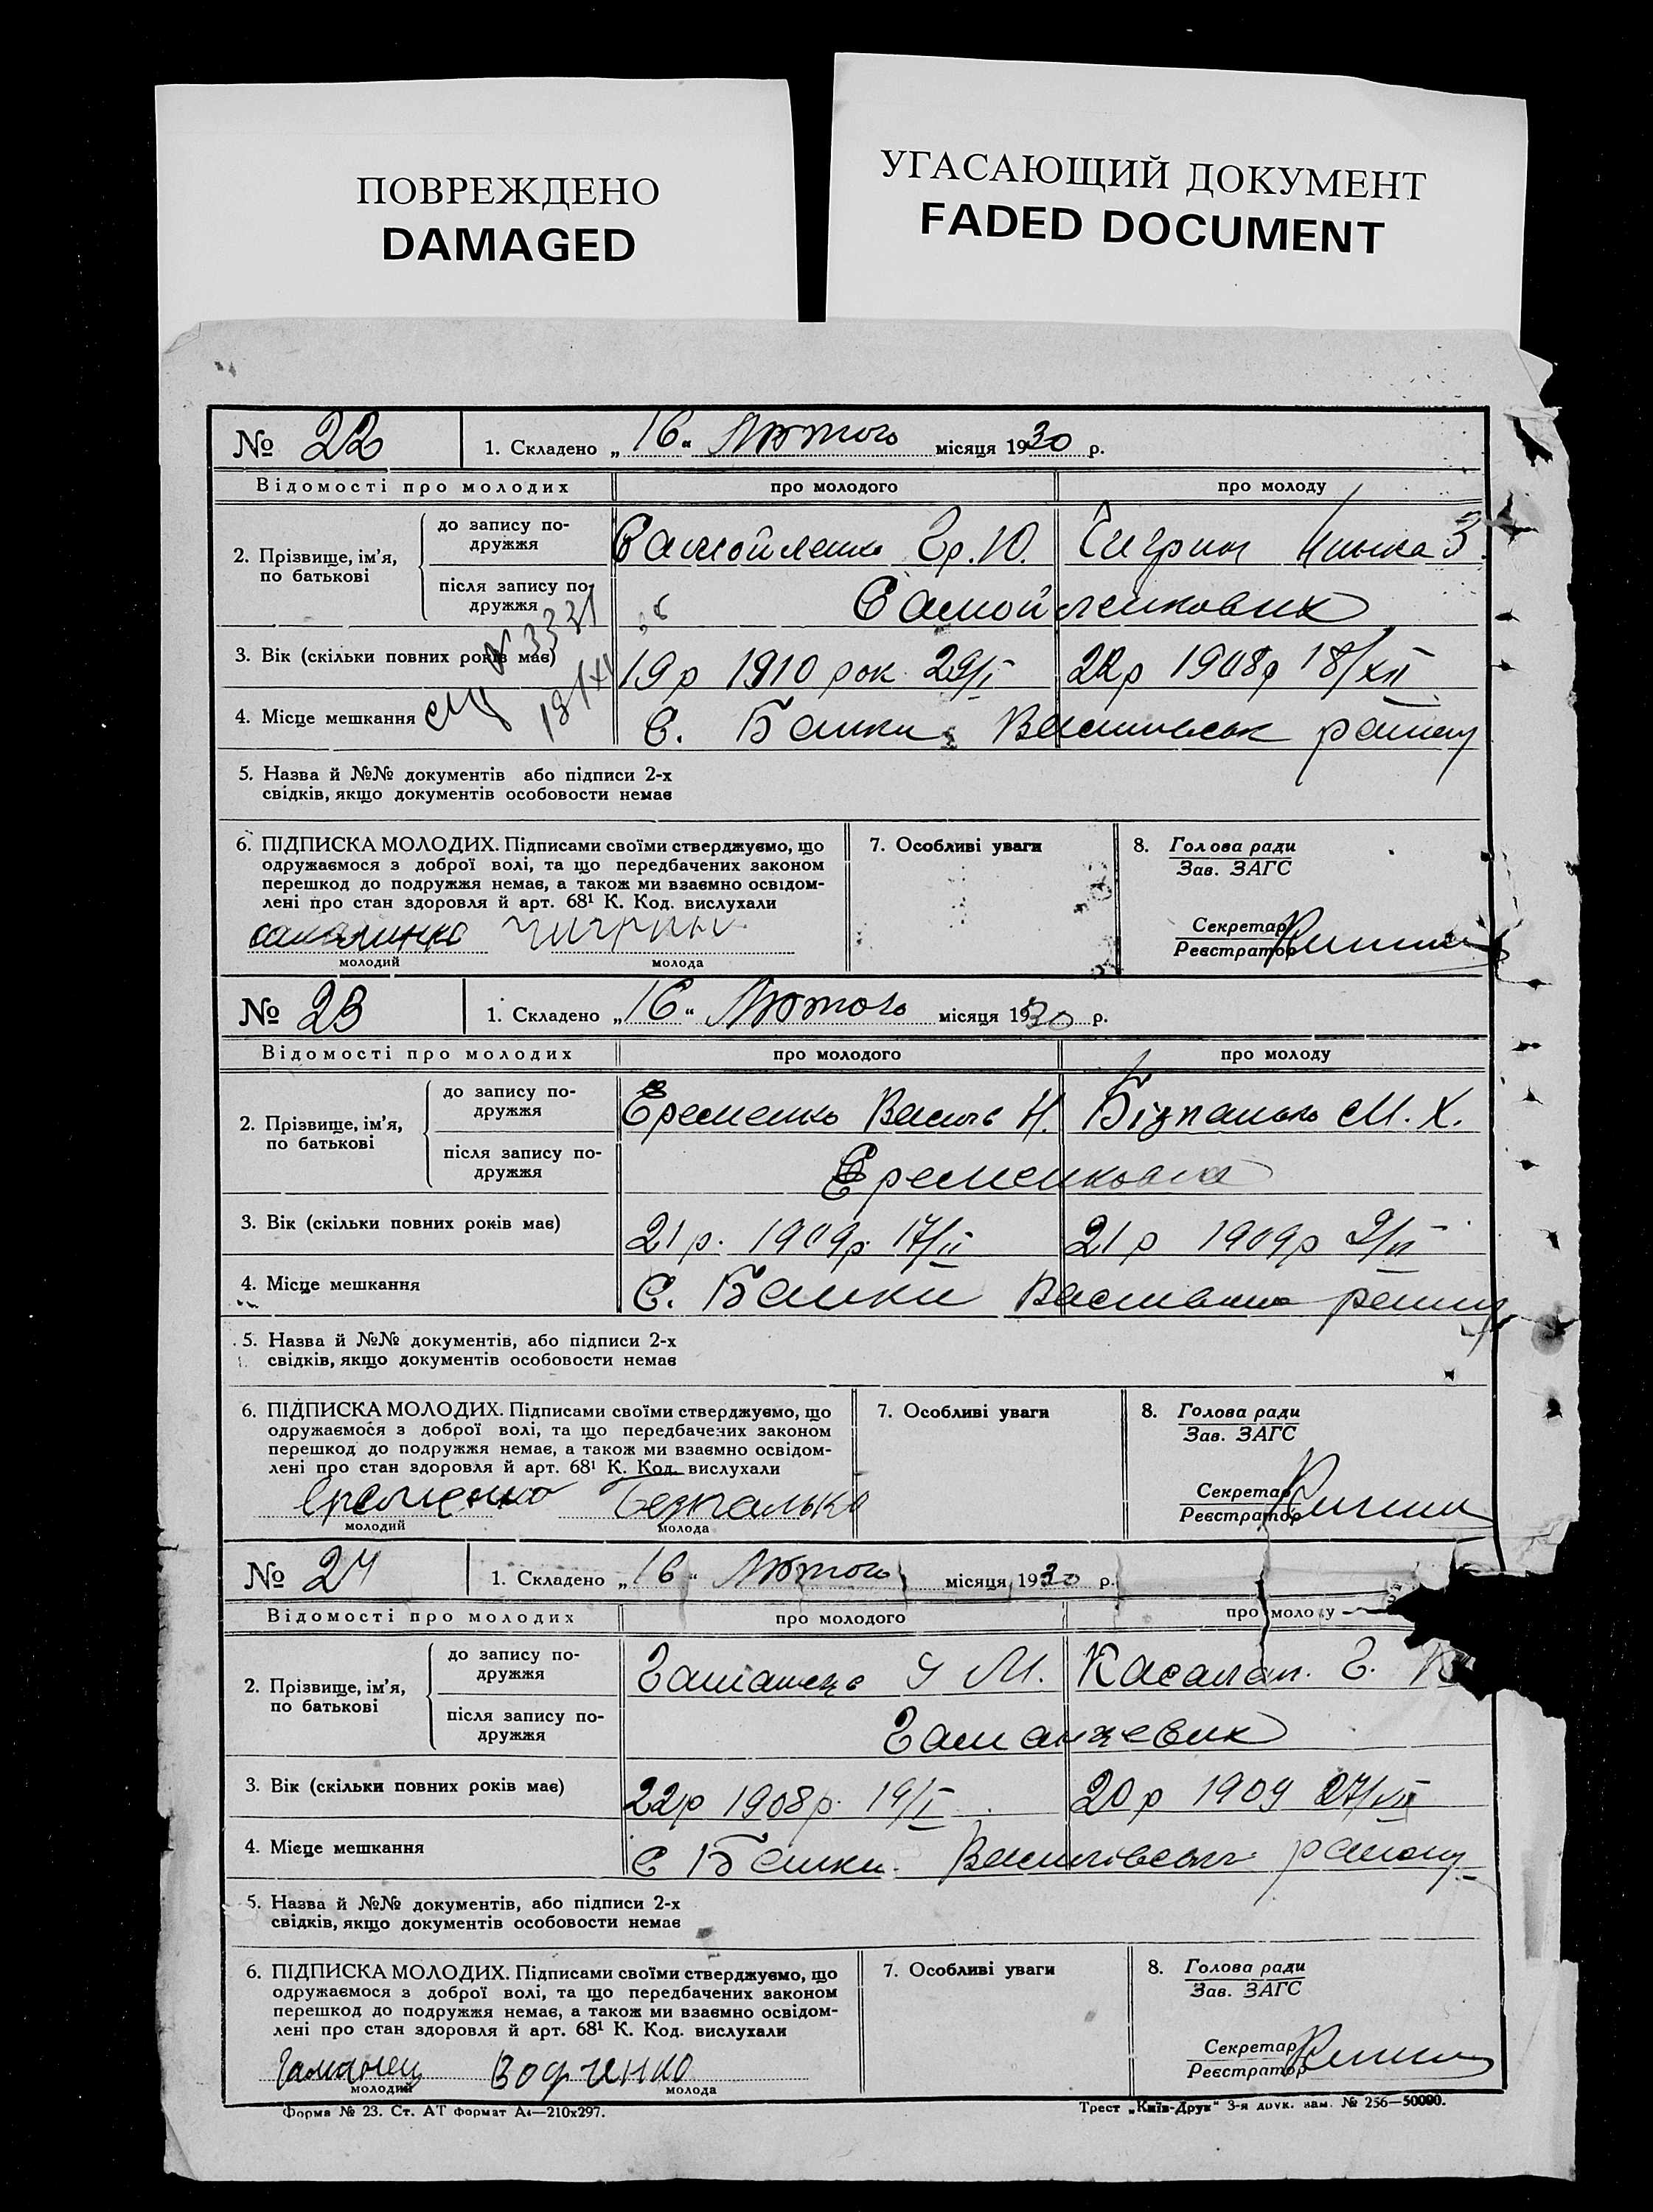 ПОВРЕЖДЕНО
DAMAGED
УГАСАЮЩИЙ ДОКУМЕНТ
FADED DOCUMENT
№ 22 1. Складено „16“ Лютого місяця 1930 р.
Відомості про молодих про молодого про молоду
2. Прізвище, ім’я, по батькові
до запису по-
дружжя
Самойленко Гр. Ю. Чигрин З.
після запису по-
дружжя
Самойленкових
N 3331
3. Вік (скільки повних років має) 19 р 1910 рок 29/I 22 р 1908 р 18/XII
4. Місце мешкання С. Балки район
5. Назва й №№ документів або підписи 2-х
свідків, якщо документів особовости немає
6. ПІДПИСКА МОЛОДИХ. Підписами своїми стверджуємо, що
одружаємося з доброї волі, та що передбачених законом
перешкод до подружжя немає, а також ми взаємно освідом-
лені про стан здоровля й арт. 68¹ К. Код. вислухали
Чигрин
молодий молода
7. Особливі уваги
8. Голова ради
Зав. ЗАГС
Секретар
Реєстратор
№ 23 1. Складено „16“ Лютого місяця 1930 р.
Відомості про молодих про молодого про молоду
2. Прізвище, ім’я, по батькові
до запису по-
дружжя
Єременко Василь Н. Бізпалько М. Х.
після запису по-
дружжя
Єременкова
3. Вік (скільки повних років має) 21 р. 1909 р. 17/II 21 р 1909 р 2/II
4. Місце мешкання С. Балки
5. Назва й №№ документів, або підписи 2-х
свідків, якщо документів особовости немає
6. ПІДПИСКА МОЛОДИХ. Підписами своїми стверджуємо, що
одружаємося з доброї волі, та що передбачених законом
перешкод до подружжя немає, а також ми взаємно освідом-
лені про стан здоровля й арт. 68¹ К. Код. вислухали
Єременко Безпалько
молодий молода
7. Особливі уваги
8. Голова ради
Зав. ЗАГС
Секретар
Реєстратор
№ 24 1. Складено „16“ Лютого місяця 1930 р.
Відомості про молодих про молодого про молоду
2. Прізвище, ім’я, по батькові
до запису по-
дружжя
М. Г.
після запису по-
дружжя
3. Вік (скільки повних років має) 22 р 1908 р. 19/I 20 р 1909 27/VII
4. Місце мешкання С Балки Василівськ району
5. Назва й №№ документів, або підписи 2-х
свідків, якщо документів особовости немає
6. ПІДПИСКА МОЛОДИХ. Підписами своїми стверджуємо, що
одружаємося з доброї волі, та що передбачених законом
перешкод до подружжя немає, а також ми взаємно освідом-
лені про стан здоровля й арт. 68¹ К. Код. вислухали
Гаманец
молодий молода
7. Особливі уваги
8. Голова ради
Зав. ЗАГС
Секретар
Реєстратор
Форма № 23. Ст. АТ формат А₄—210x297.
Трест „Київ-Друк“ 3-я друк. зам. № 256—50000.